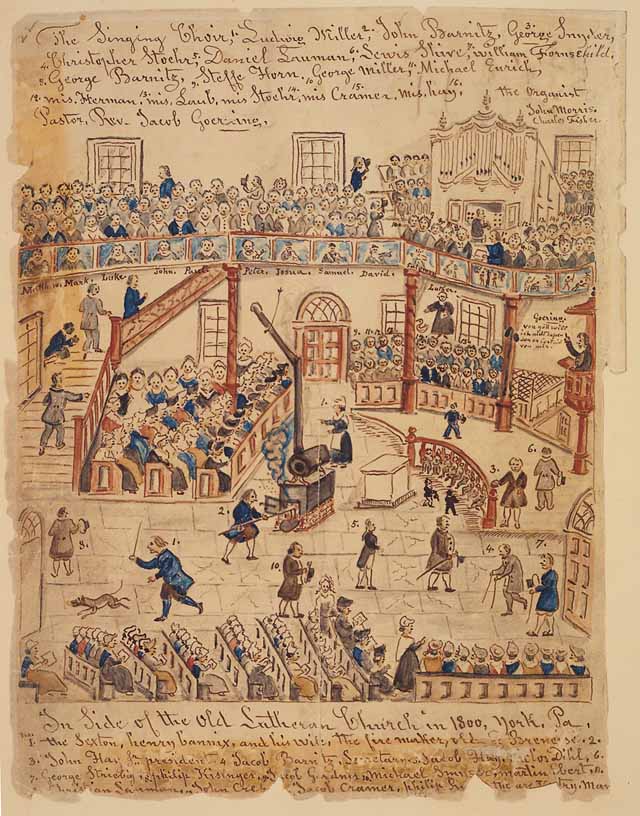 The Singing Choir, 1. Ludwig Miller, 2. John Barnitz, 3. George Snyder,
4. Christopher Stoehr, 5. Daniel Lauman, 6. Lewis Shive, 7. William Fornschild,
8. George Barnitz, 9. Steffe Horn, 10. George Miller, 11. Michael Eurich,
12. mis. Herman, 13. mis. Laub, mis Stoehr, 14. mis Cramer, 15. mis. hay, 16. the Organist
John Morris.
Charles Fisher.
Pastor, Rev. Jacob Goering,
Mark Luke John. Paul. Peter, Josua. Samuel. David.
Luther.
Goering.
von gott will
ich nicht
1.
2.
3.
6.
8.
1.
5.
10.
4.
7.
In Side of the Old Lutheran Church in 1800, York, Pa.
1. the Sexton, henry bannix, and his wife, the fire maker, 2.
3. John Hay president 4 Jacob Barnitz, Secretary 5. Jacob Hay, Dihl, 6.
7. George Striebig, philip Kisinger, Jacob Gardner, michael martin Ebert,
Lauman, John Jacob Cramer, philip the